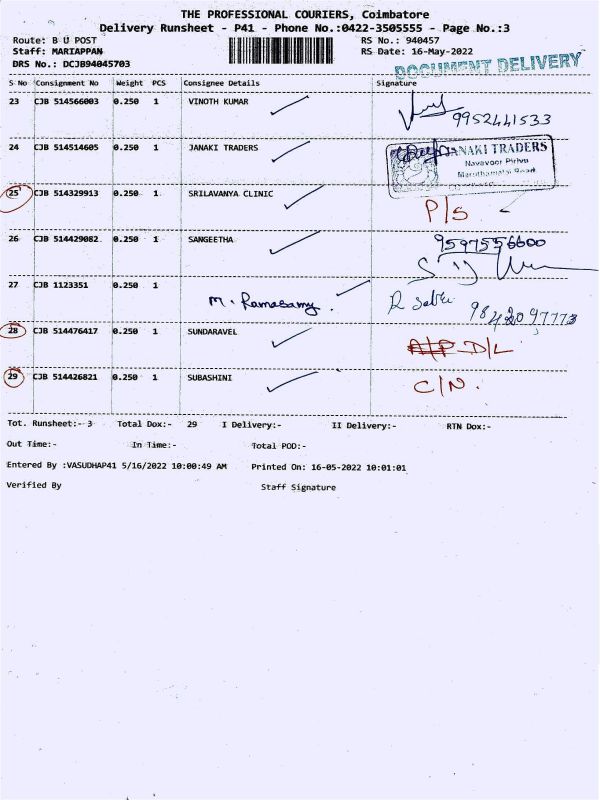 THE PROFESSIONAL COURIERS, Coimbatore
Delivery Runsheet - P41 - Phone No.:0422-3505555 - Page No.:3
Route: B U POST RS No.: 940457
Staff: MARIAPPAN RS Date: 16-May-2022
DRS No.: DCJB94045703 DOCUMENT DELIVERY
S No Consignment No Weight PCS Consignee Details Signature
23 CJB 514566003 0.250 1 VINOTH KUMAR
9952441533
24 CJB 514514605 0.250 1 JANAKI TRADERS JANAKI TRADERS
Navavoor Pirivu
Maruthamalai Road
25 CJB 514329913 0.250 1 SRILAVANYA CLINIC
P/S
26 CJB 514429082 0.250 1 SANGEETHA 9597556600
27 CJB 1123351 0.250 1
M. Ramasamy.
28 CJB 514476417 0.250 1 SUNDARAVEL
D/L
29 CJB 514426821 0.250 1 SUBASHINI C/N.
Tot. Runsheet:- 3 Total Dox:- 29 I Delivery:- II Delivery:- RTN Dox:-
Out Time:- In Time:- Total POD:-
Entered By :VASUDHAP41 5/16/2022 10:00:49 AM Printed On: 16-05-2022 10:01:01
Verified By Staff Signature